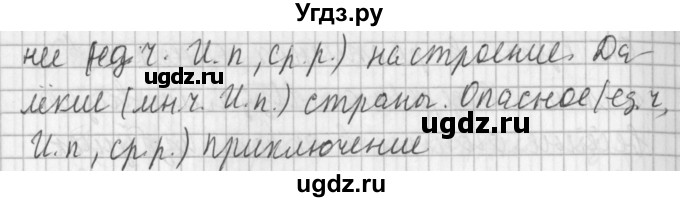 Угдз.ру
нее (ед.ч. И.п, ср.р.) настроение. Да-
лёкие (мн.ч. И.п.) страны. Опасное (ед.ч,
И.п, ср.р.) приключение
uGdz.ru
uGdz.ru
uGdz.ru
uGdz.ru